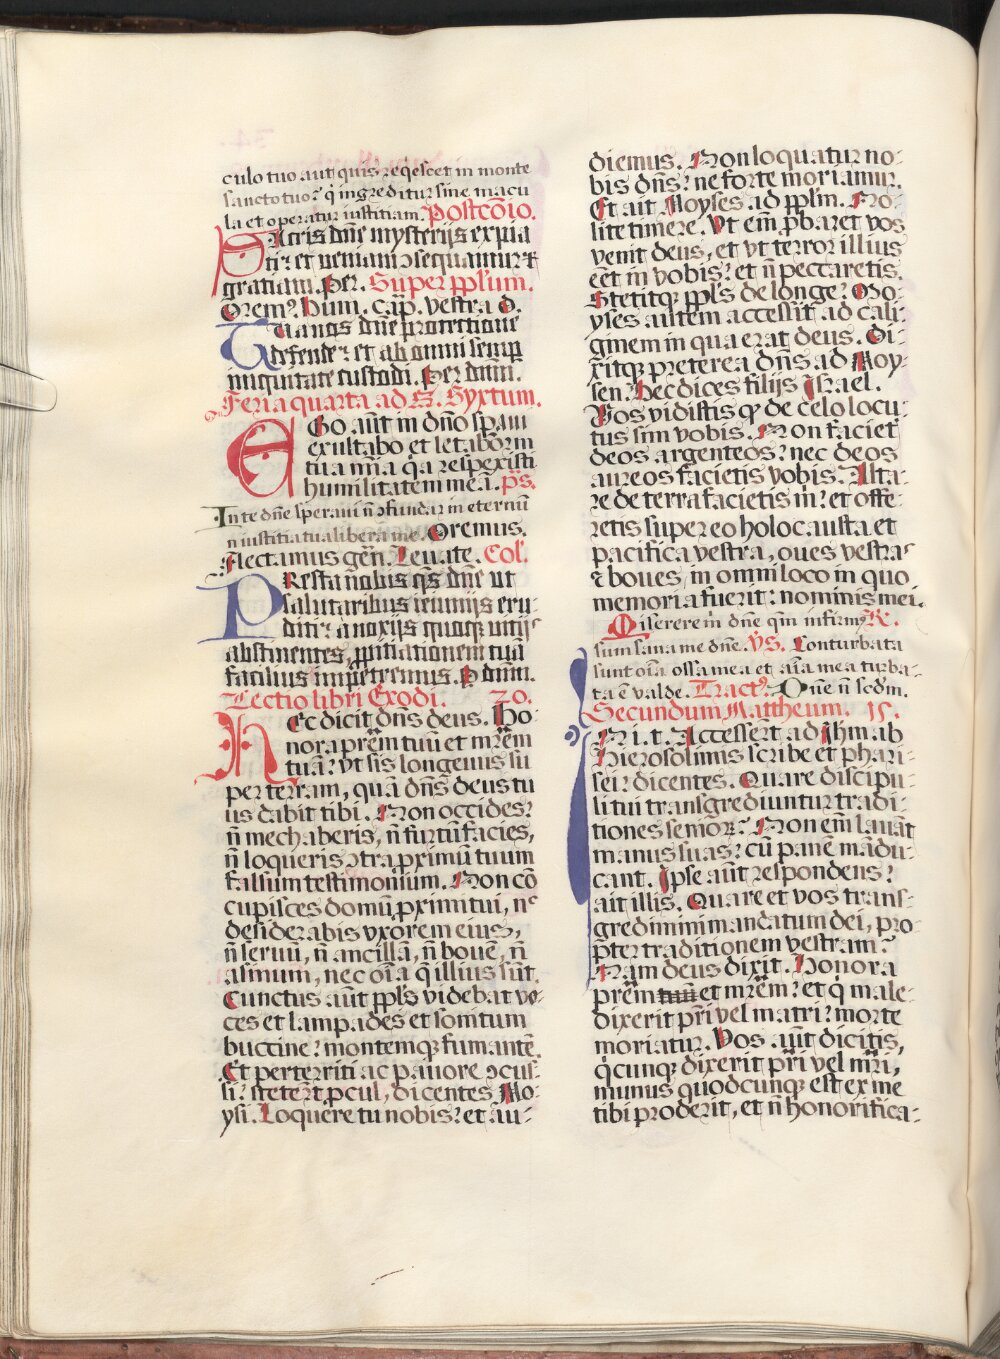 culo tuo aut quis reqescet in monte
sancto tuo? q̇ ingreditur sine macu
la et operatur iustitiam. Postcōio.
Sacris dñe mysterijs expia
ti: et ueniam ↄsequamur ⁊
gratiam. Per. Super pplʼum.
Oremꝰ. Hum. cap̄. vestra d.
Tua nos dñe protectione
defende: et ab omni semp
iniquitate custodi. Per dñm.
Feria quarta ad S. Syxtum.
Ego aūt in dño spaui
exultabo et letabor in
tua mīa q̇a respexisti
humilitatem meā. ps.
In te dñe speraui ñ ↄfundar in eternū
in iustitia tua libera me. Oremus.
Flectamus geñ. Leuate. Colʼ.
Presta nobis qs dñe ut
salutaribus ieiunijs eru-
diti: a noxijs quoqꝫ uitijs
abstinentes, ꝓpitiationem tuā
facilius impetremus. P dñm.
Lectio libri Exodi. 20.
Hec dicit dñs deus. Ho-
nora prēm tuū et mrēm
tuā: vt sis longeuus su
per terram, quā dñs deus tu
us dabit tibi. Non occides:
ñ mechaberis, ñ furtū facies,
ñ loqueris ↄtra ꝓximū tuum
falsum testimonium. Non cō
cupisces domū ꝓximi tui, nᶜ
desiderabis vxorem eius,
ñ seruū, ñ ancillā, ñ bouē, ñ
asinum, nec oīa q̄ illius sūt.
Cunctus aūt pplʼs videbat vo-
ces et lampades et sonitum
buccine: montemqꝫ fumantē.
Et perterriti ac pauore ↄcus-
si: steterūt ꝓcul, dicentes Mo-
ysi. Loquere tu nobis: et au-
diemus. Non loquatur no-
bis dñs: ne forte moriamur.
Et ait Moyses ad pplʼm. No-
lite timere. Vt em̄ ꝓbaret vos
venit deus, et vt terror illius
eēt in vobis: et ñ peccaretis.
Stetitqꝫ pplʼs de longe: Mo-
yses autem accessit ad cali-
ginem in qua erat deus. Di-
xitqꝫ preterea dñs ad Moy-
sen. Hec dices filijs Israel.
Vos vidistis qꝫ de celo locu-
tus sim vobis. Non facietꝭ
deos argenteos: nec deos
aureos facietis vobis. Alta-
re de terra facietis m̄: et offe-
retis super eo holocausta et
pacifica vestra, oues vestras
⁊ boues, in omni loco in quo
memoria fuerit: nominis mei.
Miserere m̄ dñe qm̄ infirmꝰ R.
sum sana me dñe. VS. Conturbata
sunt oīa ossa mea et aīa mea turba-
ta ē valde. Tractꝰ. Dñe ñ scdm.
Secundum Mattheum. 15.
In i. t. Accesserūt ad Ihm ab
hierosolimis scribe et phari-
sei: dicentes. Quare discipu-
li tui transgrediuntur tradi-
tiones senioꝝ? Non em̄ lauāt
manus suas: cū panē mādu-
cant. Ipse aūt respondens:
ait illis. Quare et vos trans-
gredimini mandatum dei, pro-
pter traditionem vestram?
Nam deus dixit. Honora
prēm tuū et mrēm: et q̇ male-
dixerit pr̄i vel matri: morte
moriatur. Vos aūt dicitis,
q̇cunqꝫ dixerit pr̄i vel mr̄i,
munus quodcunqꝫ est ex me
tibi proderit, et ñ honorifica-